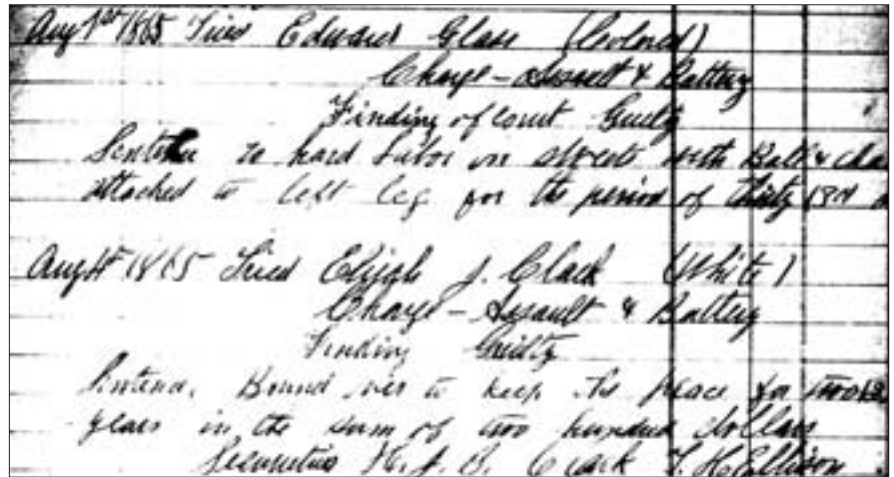 Aug 1st 1865 Tried Edward Glass (Colored)
Charge - Assault & Battery
Finding of court Guilty
Sentence to hard Labor on streets with Ball & Cha
attached to left leg for the period of thirty (30)
Aug 1st 1865 Tried Elijah J. Clack (White)
Charge - Assault & Battery
Finding Guilty
Sentence, Bound over to keep the peace for two (2)
years in the sum of two hundred dollars
Securities H. J. B. Clack T. H. Ellison